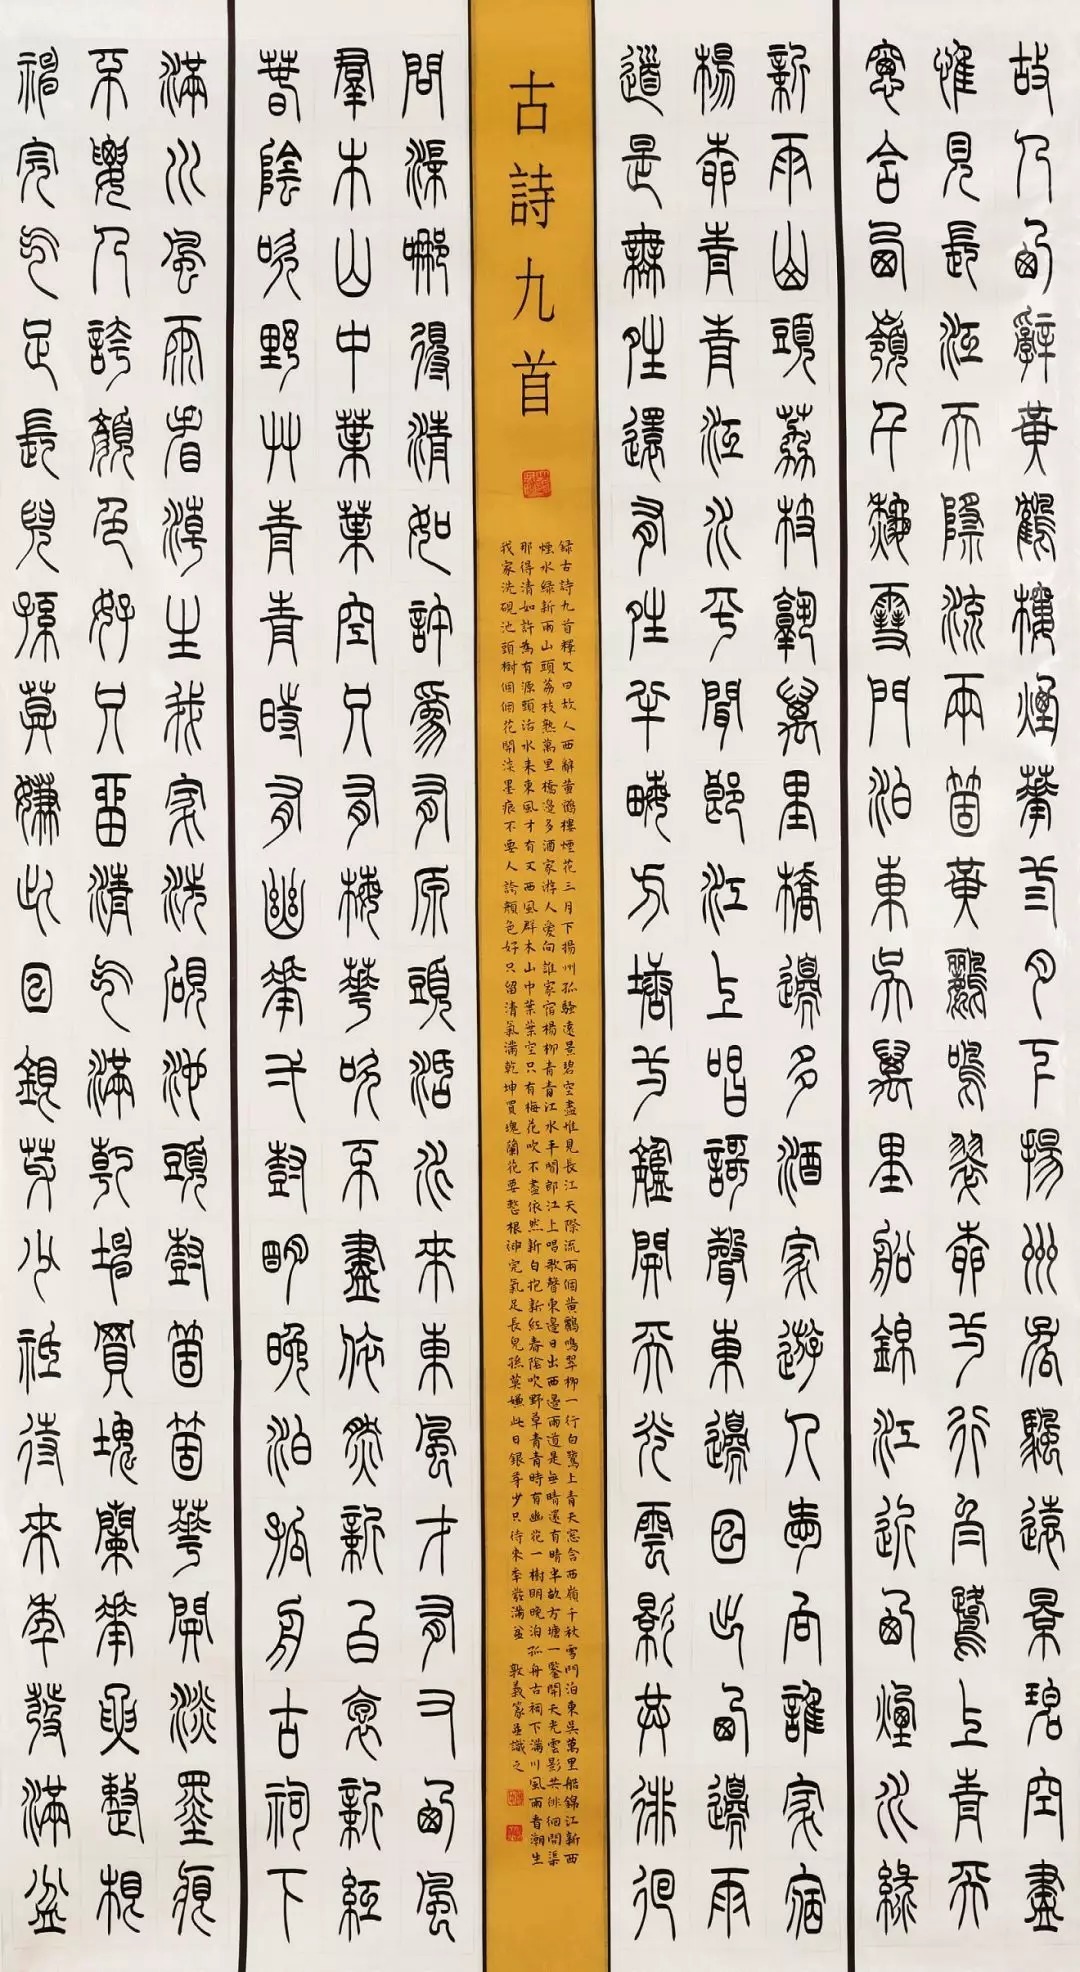 故人西辭黃鶴樓煙華三月下揚州孤颿遠景碧空盡
惟見長江天際流兩箇黃鸝鳴翠柳一行白鷺上青天
窗含西嶺千秋雪門泊東吳萬里船錦江近西煙水綠
新雨山頭荔枝孰萬里橋邊多酒家遊人愛向誰家宿
楊柳青青江水平聞郎江上唱歌聲東邊日出西邊雨
道是無晴還有晴半畝方塘一鑑開天光雲影共徘徊
古詩九首
錄古詩九首釋文曰故人西辭黃鶴樓煙花三月下揚州孤颿遠景碧空盡惟見長江天際流兩個黃鸝鳴翠柳一行白鷺上青天窓含西嶺千秋雪門泊東吳萬里船錦江新西
煙水綠新雨山頭荔枝熟萬里橋邊多酒家游人愛向誰家宿楊柳青青江水平聞郎江上唱歌聲東邊日出西邊雨道是無晴還有晴半畝方塘一鑒開天光雲影共徘徊問渠
那得清如許為有源頭活水來東風才有又西風群木山中葉葉空只有梅花吹不盡依然新白抱新紅春陰吹野草青青時有幽花一樹明晚泊孤舟古祠下滿川風雨看潮生
我家洗硯池頭樹個個花開淡墨痕不要人誇顏色好只留清氣滿乾坤買塊蘭花要整根神完氣足長兒孫莫嫌此日銀芽少只待來年發滿盆 敦義篆並識之
問渠那得清如許為有原頭活水來東風才有又西風
群木山中葉葉空只有梅華吹不盡依然新白抱新紅
春陰吹野艸青青時有幽華一樹明晚泊孤舟古祠下
滿川風雨看潮生我家洗硯池頭樹箇箇華開淡墨痕
不要人誇顏色好只留清气滿乾坤買塊蘭華要整根
神完气足長兒孫莫嫌此日銀芽少祗待來年發滿盆